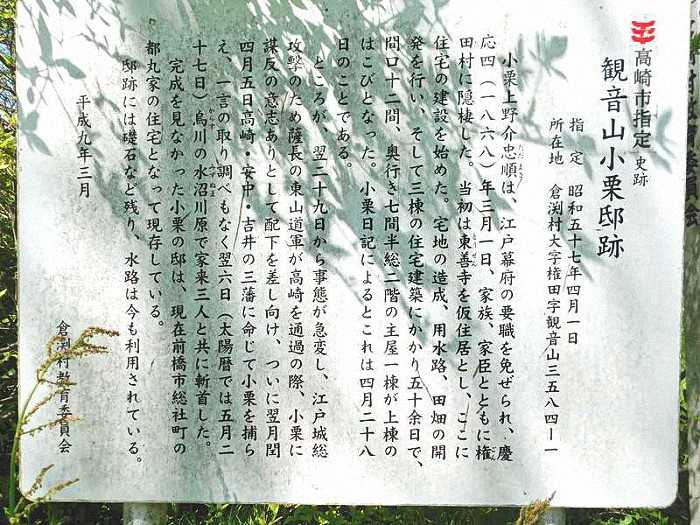 高崎市指定 史跡
観音山小栗邸跡
指定 昭和五十七年四月一日
所在地 倉渕村大字権田字観音山三五八四ー一
小栗上野介忠順は、江戸幕府の要職を免ぜられ、慶
応四(一八六八)年三月一日、家族、家臣とともに権
田村に隠棲した。当初は東善寺を仮住居とし、ここに
住宅の建設を始めた。宅地の造成、用水路、田畑の開
発を行い、そして三棟の住宅建築にかかり五十余日で、
間口十二間、奥行き七間半総二階の主屋一棟が上棟の
はこびとなった。小栗日記によるとこれは四月二十八
日のことである。
ところが、翌二十九日から事態が急変し、江戸城総
攻撃のため薩長の東山道軍が高崎を通過の際、小栗に
謀反の意志ありとして配下を差し向け、ついに翌月閏
四月五日高崎・安中・吉井の三藩に命じて小栗を捕ら
え、一言の取り調べもなく翌六日(太陽暦では五月二
十七日)烏川の水沼川原で家来三人と共に斬首した。
完成を見なかった小栗の邸は、現在前橋市総社町の
都丸家の住宅となって現存している。
邸跡には礎石など残り、水路は今も利用されている。
平成九年三月
倉渕村教育委員会